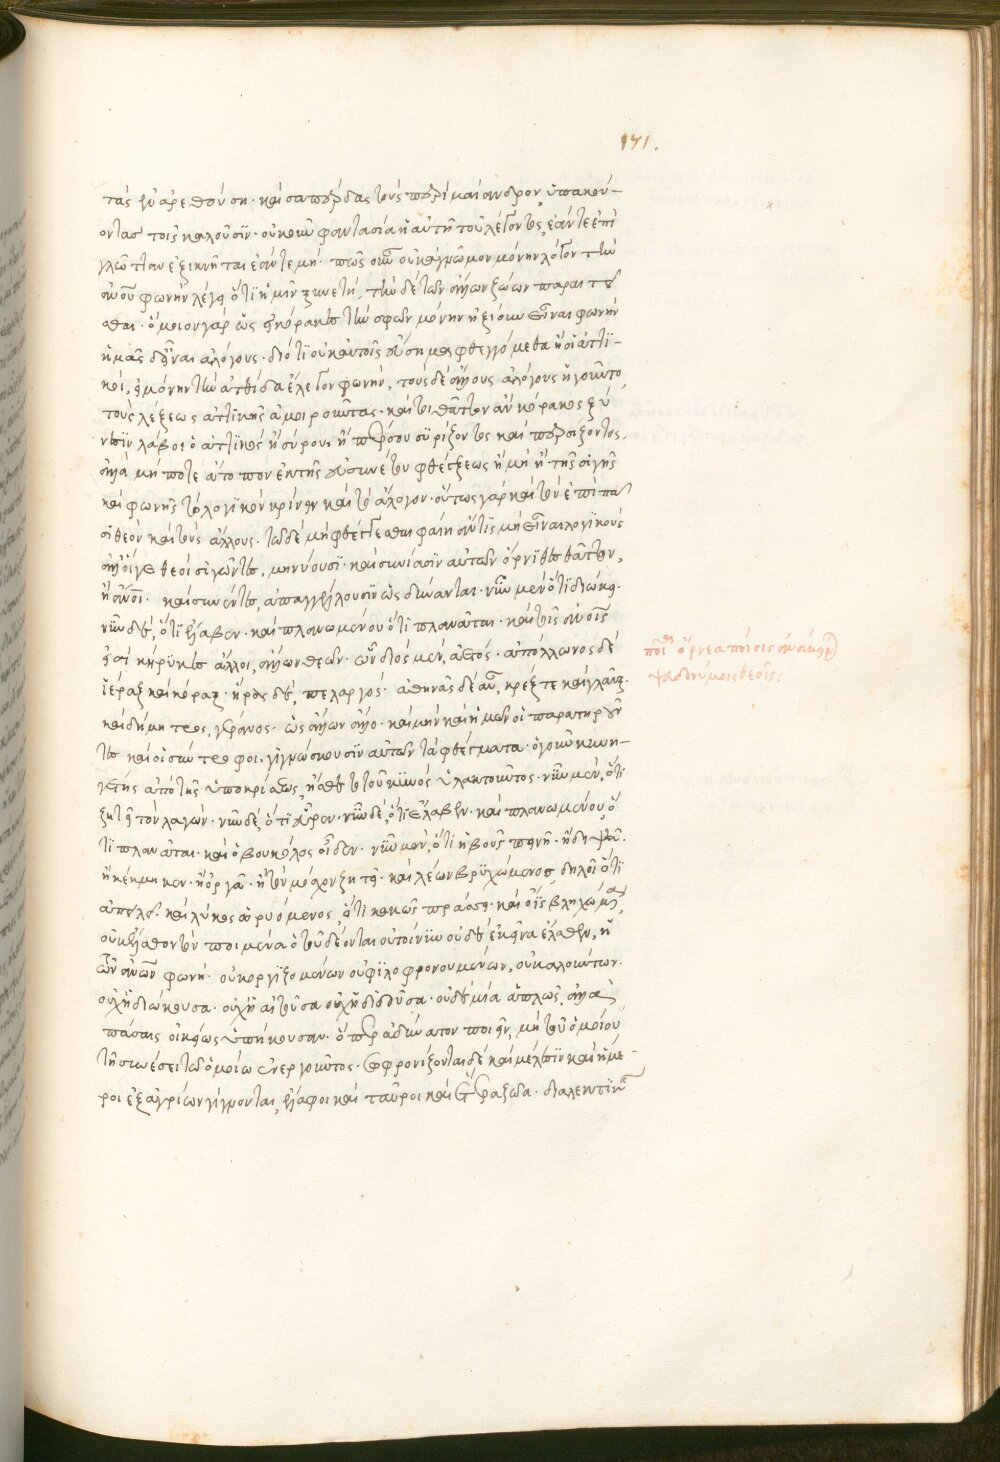 τὰς ἐν ἀρεθούσῃ· καὶ σαπέρδας τοὺς περὶ μαίανδρον, ὑπακού-
οντας τοῖς καλοῦσϊν· οὐκοῦν φαντασία ἡ αὐτὴ τοῦ λέγοντος, ἐάν τε ἐπὶ
γλῶτταν ἐξικνῆται ἐάν τε μή· πῶς οὖν οὐκ ἄγνωμον μόνην λόγον τὴν
ἀνου φωνὴν λέγειν ὅτι ἡμῖν ξυνετὴ, τὴν δὲ τῶν ἄλλων ζώων παραιτεῖ
σθαι· ὅμοιον γὰρ ὡς εἰ κόρακες τὴν σφῶν μόνην ἠξίουν εἶναι φωνὴν
ἡμᾶς δ' εἶναι αλόγους· διότι οὐκ αυτοῖς εὔσημα φθεγγόμεθα ἢ οἱ ἀττϊ-
κοὶ, εἰ μόνην τὴν ἀτθίδα ἔλεγον φωνὴν, τοὺς δὲ ἄλλους ἀλόγους ἡγοῦντο
τοὺς λέξεως ἀττικῆς ἀμοιροῦντας· καίτοι θᾶττον ἂν κόρακος ξύ
νεσϊν λάβοι ὁ ἀττϊκὸς ἢ σύρου ἢ πέρσου συρίζοντος καὶ περσίζοντος,
ἀλλὰ μή ποτε ἄτοπον ἐκ τῆς εὐσυνέτου φθέγξεως ἢ μὴ ἢ τῆς σιγῆς
καὶ φωνῆς τὸ λογϊκὸν κρίνειν καὶ τὸ ἄλογον· οὕτως γὰρ καὶ τὸν ἐπὶ πᾶ
σϊ θεὸν καὶ τοὺς ἄλλους· τῶ δὲ μὴ φθέγγεσθαι φαίη ἄν τϊς μὴ εἶναι λογϊκούς
ἀλλ' οἵ γε θεοὶ σϊγῶντες, μηνύουσϊ· καὶ συνιάσϊν αὐτῶν ὄρνϊθες θᾶττον,
ἢ ἄνοι· καὶ συνέντες, ἀπαγγέλλουσϊν ὡς δύνανται· νῦν μὲν ὅτϊ διώκει·
νῦν δὲ, ὅτϊ ἔλαβεν· καὶ πλανωμένου ὅτϊ πλανᾶται· καὶ τοῖς ἀνοις
εἰσὶ κήρϋκες ἄλλοι, ἄλλων θεῶν· ὧν διὸς μὲν, ἀετός· ἀπόλλωνος δὲ
ἱέραξ καὶ κόραξ· ἥρας δὲ, πελαργός· ἀθηνᾶς δὲ αὖ, κρέξ τε καὶ γλαύξ·
καὶ δήμητρος, γέρανος· ὡς ἄλλων ἄλλο· καὶ μὴν καὶ ἡμῶν οἱ παρατηροῦν
τες καὶ οἱ σύντροφοι· γϊγνώσκουσϊν αὐτῶν τὰ φθέγματα· ὁ γοῦν κυνη-
γέτης ἀπὸ τῆς ὑποκρίσεως, ᾔσθετο τοῦ κϋνὸς ὑλακτοῦντος· νῦν μὲν, ὅτϊ
ζητεῖ τὸν λαγών· νῦν δὲ, ὅτϊ εὗρεν· νῦν δὲ, ὅτϊ ἔλαβεν· καὶ πλανωμένου, ὅ
τϊ πλανᾶται· καὶ ὁ βουκόλος οἶδεν· νῦν μὲν, ὅτϊ ἡ βοῦς πεινῇ· ἢ διψᾷ·
ἢ κέκμηκεν· ἢ ὀργᾷ· ἢ τὸν μόσχον ζητεῖ· καὶ λέων βρϋχώμενος, δηλοῖ ὅτϊ
ἀπειλεῖ· καὶ λύκος ὠρυόμενος, ὅτϊ κακῶς πράσσει· καὶ οἶς βληχωμένη,
οὐκ ἔλαθον τὸν ποιμένα ὁτου δέονται
ὧν ἀνων φωνή· οὐκ οργϊζομένων οὐ φϊλοφρονουμένων, οὐ καλούντων·
οὐχ ἡ διώκουσα· οὐχ ἡ αἰτοῦσα οὐχ ἡ δϊδοῦσα· οὐδεμία ἁπλῶς, ἀλλὰ
πάσαις οἰκείως ὑπήκουσαν· ὅπερ ἀδύνατον ποιεῖν, μὴ τοῦ ὁμοίου
τῇ συνέσει τῶ ὁμοίω ἐνεργοῦντος· σωφρονίζονται δὲ καὶ μέλεσϊν καὶ ἥμε-
ροι ἐξ ἀγρίων γίγνονται, ἔλαφοι καὶ ταῦροι καὶ ἕτερα ζῶα· διαλεκτϊκὴν
171.
ποῖα ὄρνεα ποίοις ἀνάκειται
ψευδωνύμοις θεοῖς: